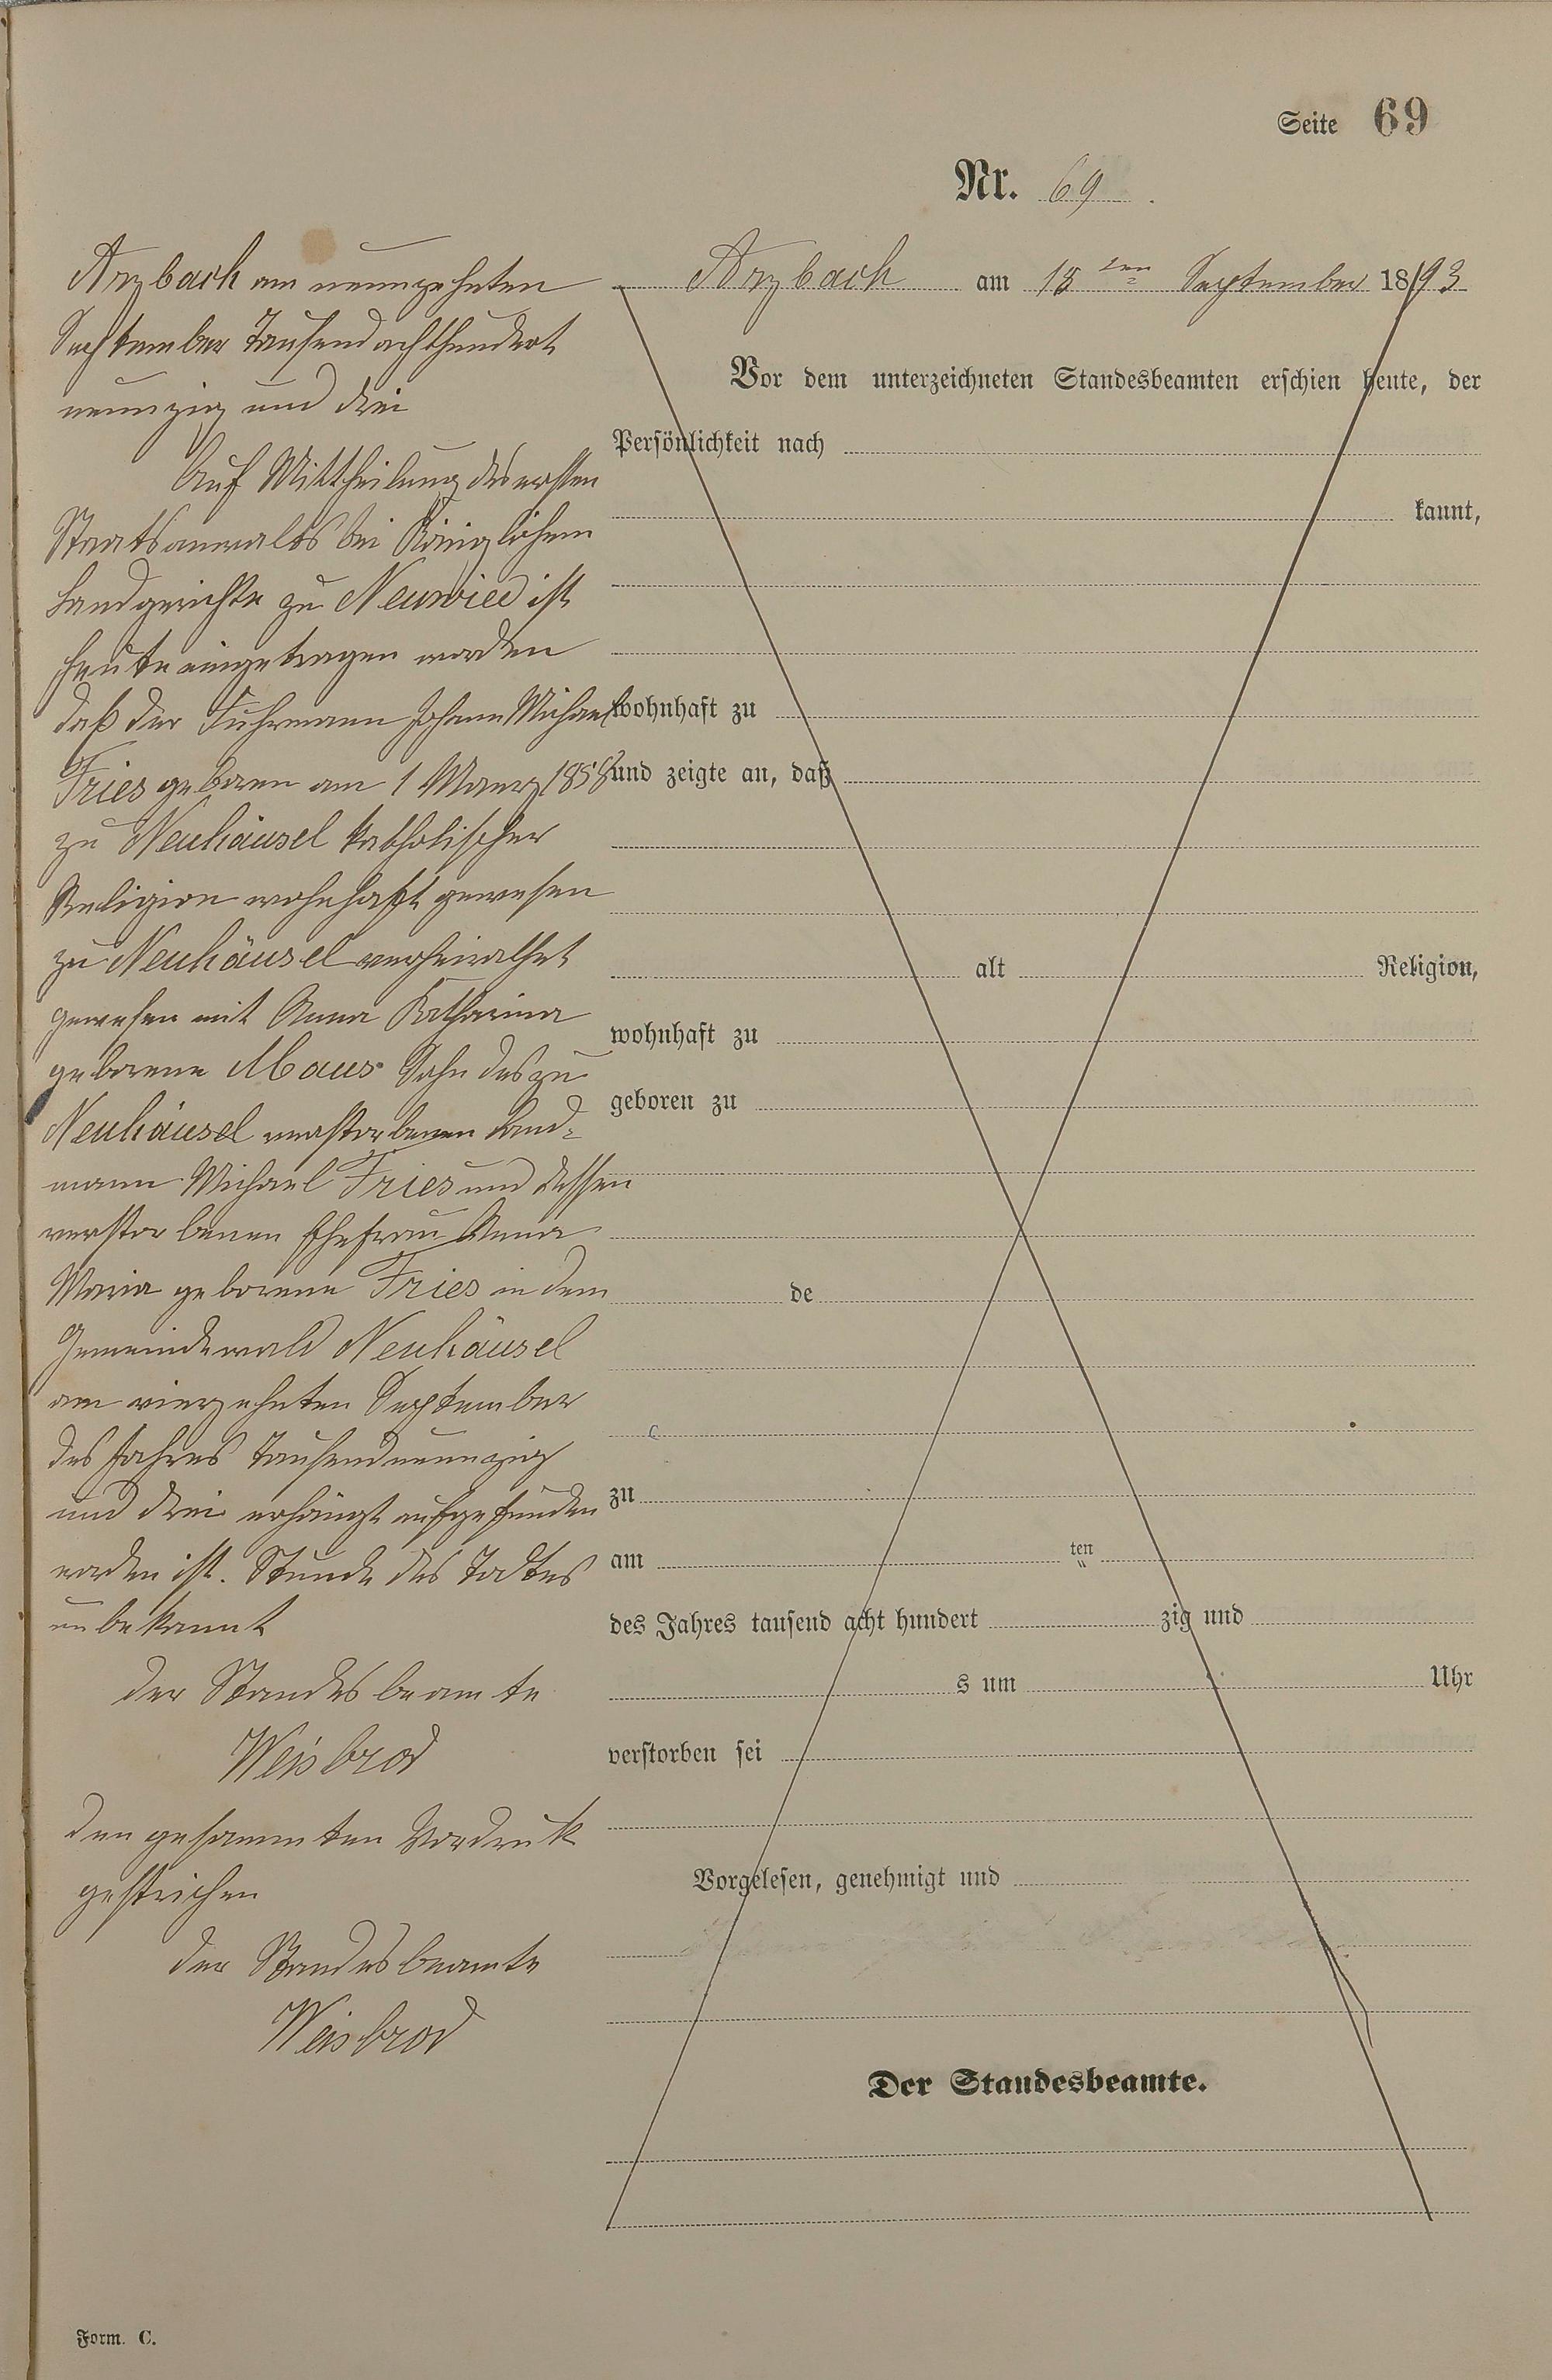 Seite 69
Nr. 69.
Arzbach am neunzehnten
September Tausendachthundert
neunzig und drei
Auf Mittheilung des ersten
Staatsanwalts bei Königlichem
Landgerichte zu Neuwied ist
heute eingetragen worden
daß der Fuhrmann Johann Michael
Fries geboren am 1 Maerz 1858
zu Neuhäusel katholischer
Religion wohnhaft gewesen
zu Neuhäusel verheirathet
gewesen mit Anna Katharina
geborene Maus Sohn des zu
Neuhäusel verstorbenen Land-
mann Michael Fries und dessen
verstorbenen Ehefrau Anna
Maria geborene Fries in dem
Gemeindewald Neuhäusel
am vierzehnten September
des Jahres Tausendneunzig
und drei erhängt aufgefunden
worden ist. Stunde des Todtes
unbekannt
der Standesbeamte
Weisbrod
den gesammten Vordruk
gestrichen
der Standesbeamte
Weisbrod
Arzbach am ten September 1893
Vor dem unterzeichneten Standesbeamten erschien heute, der
Persönlichkeit nach
kannt,
wohnhaft zu
und zeigte an, daß
alt Religion,
wohnhaft zu
geboren zu
de
zu
am ten
des Jahres tausend acht hundert zig und
s um Uhr
verstorben sei
Vorgelesen, genehmigt und
Der Standesbeamte.
Form. C.